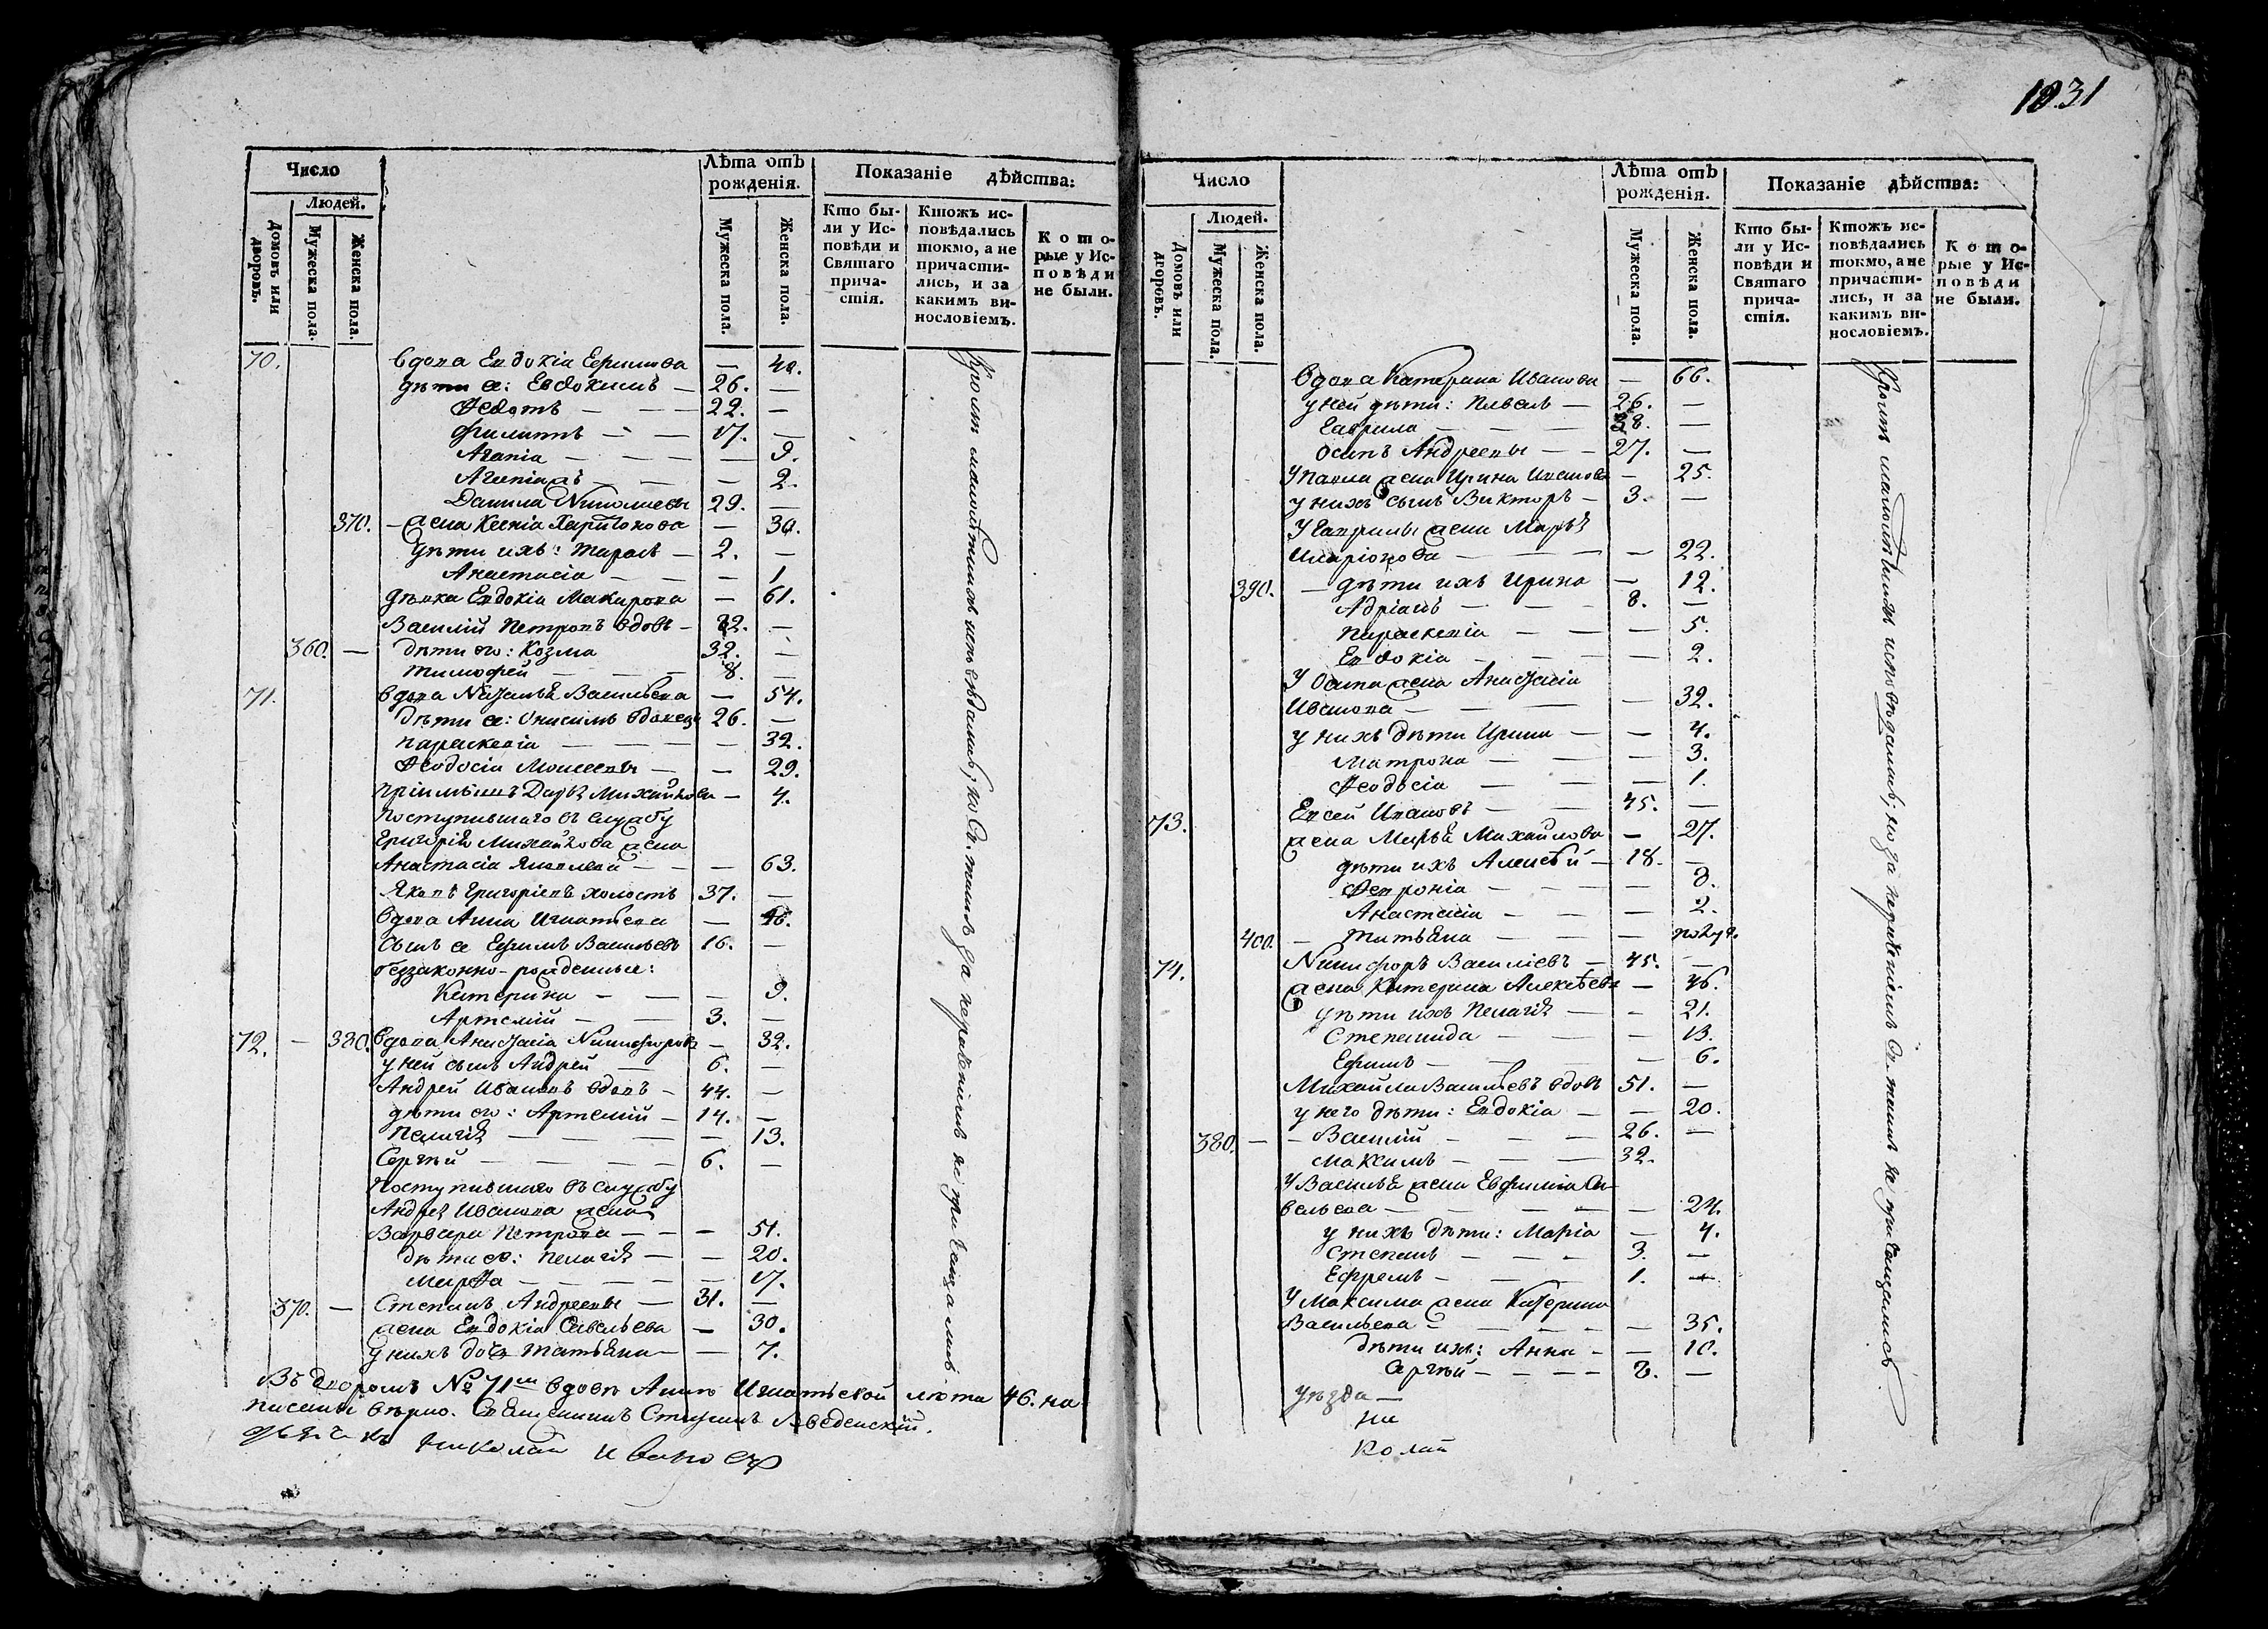 1031
Число
Людей.
Домовъ или дворовъ.
Мужеска пола.
Женска пола.
Лѣта отъ рожденія.
Мужеска пола.
Женска пола.
Показаніе дѣйства:
Кто бы-
ли у Ис-
повѣди и
Святаго
прича-
стія.
Ктожъ ис-
повѣдались
токмо, а не
причасти-
лись, и за
какимъ ви-
нословіемъ.
Кото-
рые у Ис-
повѣди
не были.
70. вдова Евдокія Ефимова — 40.
дѣти ея: Евдокимъ — 26. —
Ѳедотъ — — — 22. —
Филиппъ — — 17. —
Агапія — — — — 9.
— — — 2.
Данила Николаевъ 29. —
370. — жена Ксенія Харитонова — 30.
дѣти ихъ: Тарасъ — 2. —
Анастасія — — — 1
дѣвка Евдокія Макарова — 61.
Василій Петровъ вдовъ — 82. —
360. — дѣти его: Козма 32. —
Тимофей — — — 8. —
71. вдова Наталья Васильева — 54.
дѣти ея: Онисимъ 26. —
Параскевія — — — — 32.
Ѳеодосія Моисеевы — — 29.
Дарья Михайлова — 4.
Поступившаго въ службу
Григорія Михайлова жена
Анастасія Яковлева — — — 63.
Яковъ Григоріевъ холостъ 37. —
вдова Анна Игнатьева — 46.
сынъ ея Ефимъ Васильевъ 16. —
беззаконно-рожденные:
Катерина — — — 9.
Артемій — — 3. —
72. — 380. вдова Анастасія Никифорова — 32.
у ней сынъ Андрей — 6. —
Андрей Ивановъ вдовъ — 44. —
дѣти его: Артемій — 14. —
Пелагія — — — — 13.
Сергѣй — — — — 6. —
Поступившаго въ службу
Андрея Иванова жена
Варвара Петрова — — — 51.
дѣти ея: Пелагія — — 20.
Марѳа — — — — — 17.
370. — Степанъ Андреевъ — 31. —
жена Евдокія Савельева — 30.
у нихъ дочь Татьяна — — 7.
Кромѣ малолѣтнихъ исповѣдались, но Св. таинъ за нерадѣніемъ не причащались
Въ дворомъ № 71мъ вдовѣ Аннѣ Игнатьевой лѣта 46. на
писаны вѣрно. Священникъ Стефанъ Введенскій.
дьячекъ Николай Ивановъ
Число
Людей.
Домовъ или дворовъ.
Мужеска пола.
Женска пола.
Лѣта отъ рожденія.
Мужеска пола.
Женска пола.
Показаніе дѣйства:
Кто бы-
ли у Ис-
повѣди и
Святаго
прича-
стія.
Ктожъ ис-
повѣдались
токмо, а не
причасти-
лись, и за
какимъ ви-
нословіемъ.
Кото-
рые у Ис-
повѣди
не были.
вдова Катерина Иванова — 66.
у ней дѣти: Павелъ — 26. —
Гаврила — — — 38. —
Осипъ Андреевы — — 27. —
У Павла жена Ирина Иванова — 25.
у нихъ сынъ Викторъ — 3. —
У Гаврилы жена Марья
Иларіонова — — — — 22.
390. — дѣти ихъ Ирина — 12.
Адріанъ — — — 8. —
Параскевія — — — 5.
Евдокія — — — — 2.
У Осипа жена Анастасія
Иванова — — — — 32.
у нихъ дѣти Ирина — — 4.
Матрона — — — 3.
Ѳеодосія — — — 1.
73. Евсей Ивановъ — — 45. —
жена Марья Михайлова — 27.
дѣти ихъ Алексѣй — 18. —
Ѳевронія — — — — 8.
Анастасія — — — — 2.
400. — Татьяна — — — полуг.
74. Никифоръ Василіевъ — 45. —
жена Катерина Алексѣева — 46.
дѣти ихъ Пелагія — — 21.
Степанида — — — 13.
Ефимъ — — — — 6.
Михайла Васильевъ вдовъ 51. —
у него дѣти: Евдокія — — 20.
380. — — Василій — — — 26. —
Максимъ — — — 32.
У Василья жена Евфимія Са-
вельева — — — — — 24.
у нихъ дѣти: Марія — 4.
Степанъ — — — 3. —
Ефремъ — — — 1. —
У Максима жена Катерина
Васильева — — — — — 35.
дѣти ихъ: Анна — — 10.
Сергѣй — — — — 8. —
Кромѣ малолѣтнихъ исповѣдались, но за нерадѣніемъ Св. таинъ не причащались
уѣзда —
Ни
колай